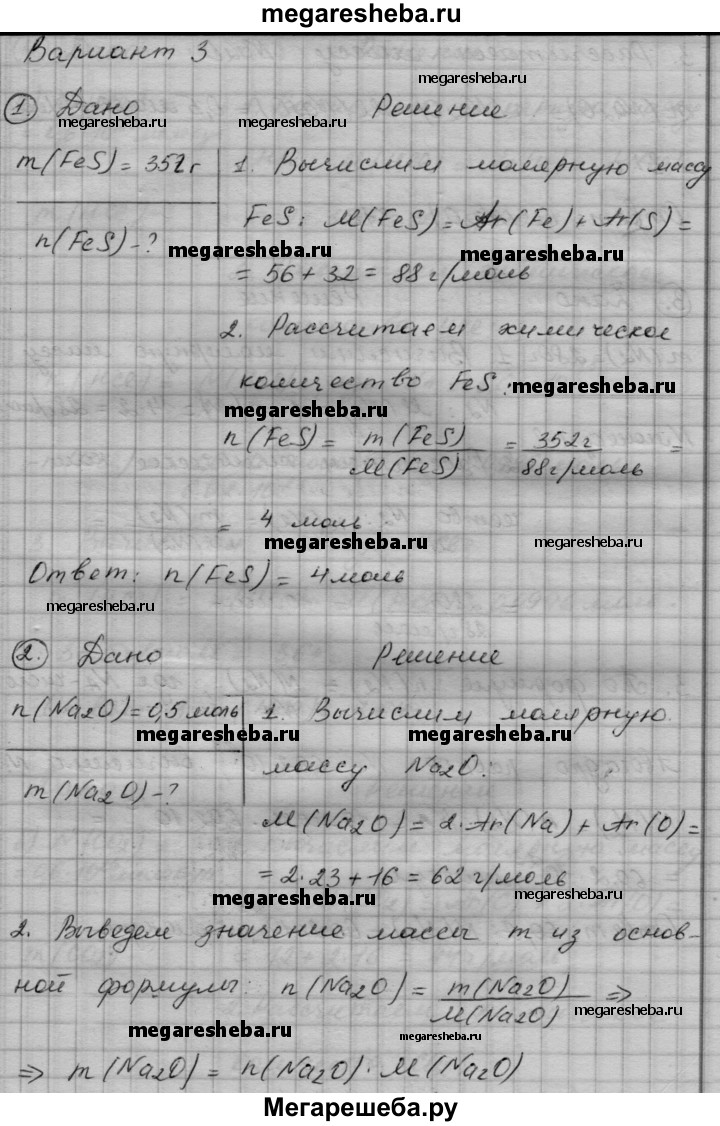 megaresheba.ru
Вариант 3
megaresheba.ru
1 Дано Решение
megaresheba.ru megaresheba.ru megaresheba.ru
m(FeS) = 352 г 1. Вычислим молярную массу
FeS: M(FeS) = Ar(Fe) + Ar(S) =
n(FeS) - ?
megaresheba.ru megaresheba.ru
= 56 + 32 = 88 г/моль
2. Рассчитаем химическое
количество FeS: megaresheba.ru
megaresheba.ru
n(FeS) = m(FeS) / M(FeS) = 352 г / 88 г/моль =
= 4 моль
megaresheba.ru megaresheba.ru
Ответ: n(FeS) = 4 моль
megaresheba.ru
2. Дано Решение
n(Na2O) = 0,5 моль 1. Вычислим молярную
megaresheba.ru megaresheba.ru
массу Na2O.
m(Na2O) - ?
M(Na2O) = 2·Ar(Na) + Ar(O) =
= 2·23 + 16 = 62 г/моль
megaresheba.ru megaresheba.ru
2. Выведем значение массы m из основ-
ной формулы: n(Na2O) = m(Na2O) / M(Na2O) ⇒
megaresheba.ru
megaresheba.ru megaresheba.ru
⇒ m(Na2O) = n(Na2O) · M(Na2O)
Мегарешеба.ру